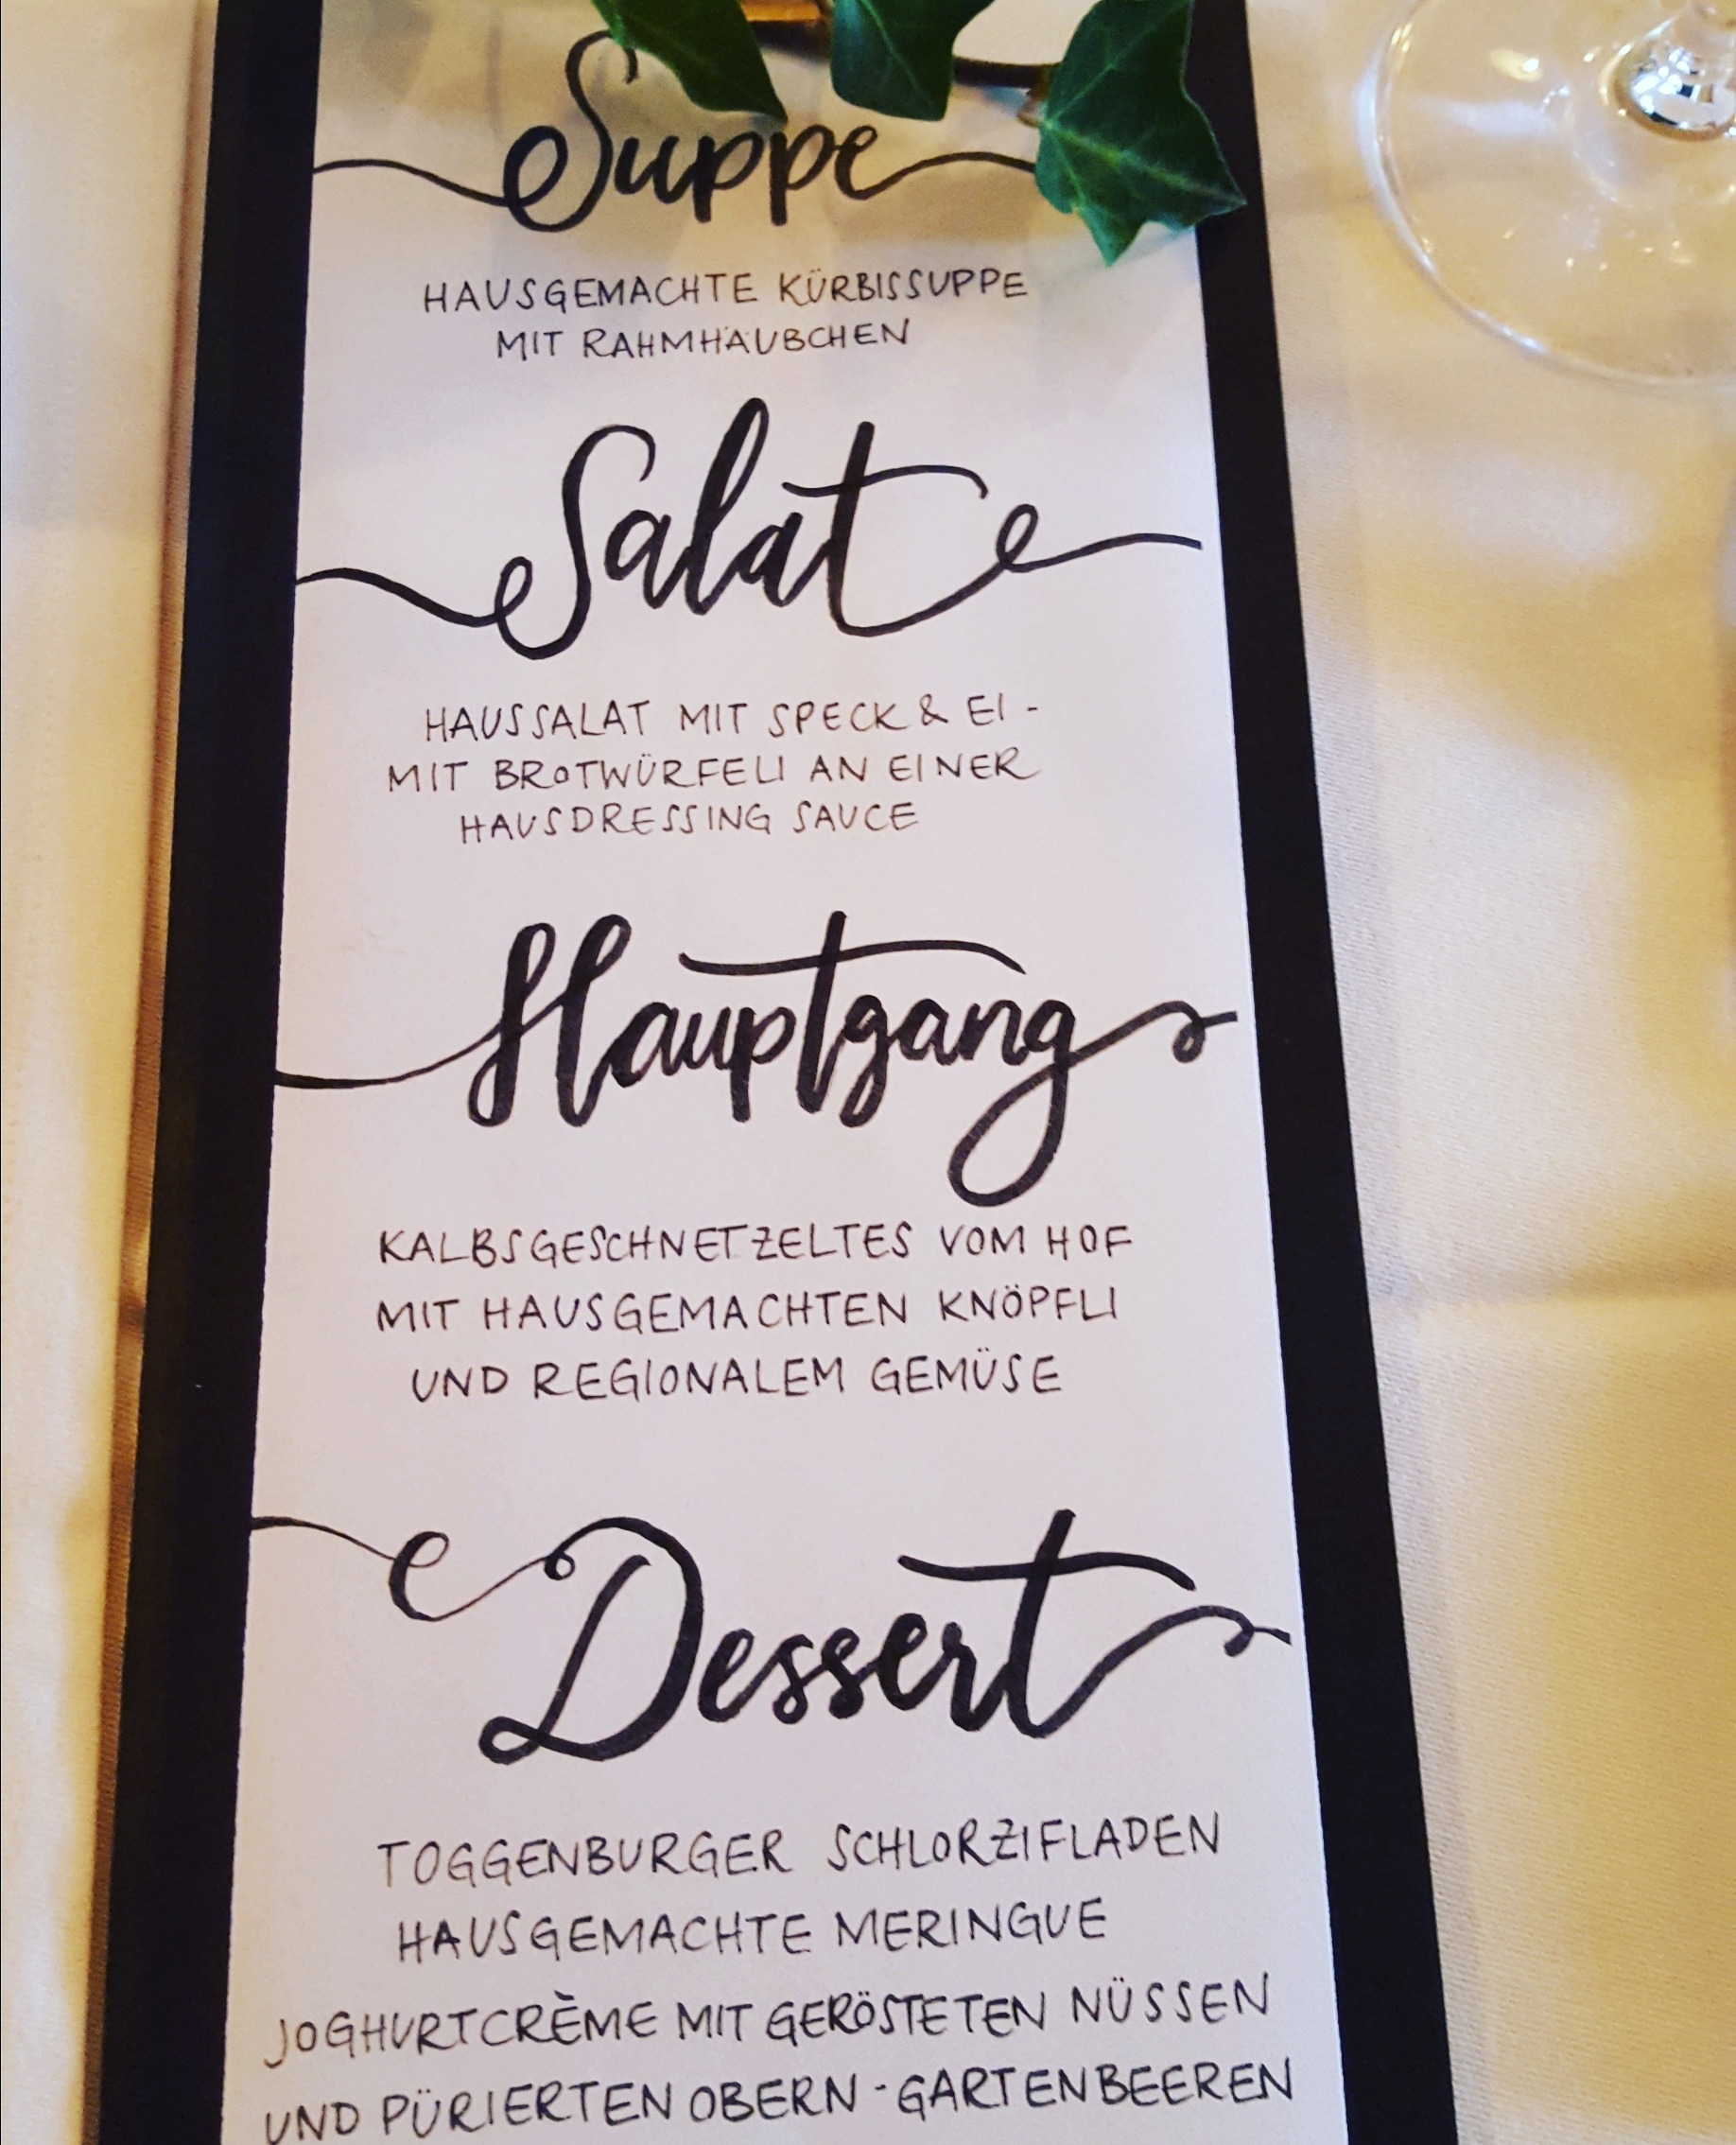 Suppe
HAUSGEMACHTE KÜRBISSUPPE
MIT RAHMHÄUBCHEN
Salat
HAUSSALAT MIT SPECK & EI -
MIT BROTWÜRFELI AN EINER
HAUSDRESSING SAUCE
Hauptgang
KALBSGESCHNETZELTES VOM HOF
MIT HAUSGEMACHTEN KNÖPFLI
UND REGIONALEM GEMÜSE
Dessert
TOGGENBURGER SCHLORZIFLADEN
HAUSGEMACHTE MERINGUE
JOGHURTCRÈME MIT GERÖSTETEN NÜSSEN
UND PÜRIERTEN OBERN-GARTENBEEREN